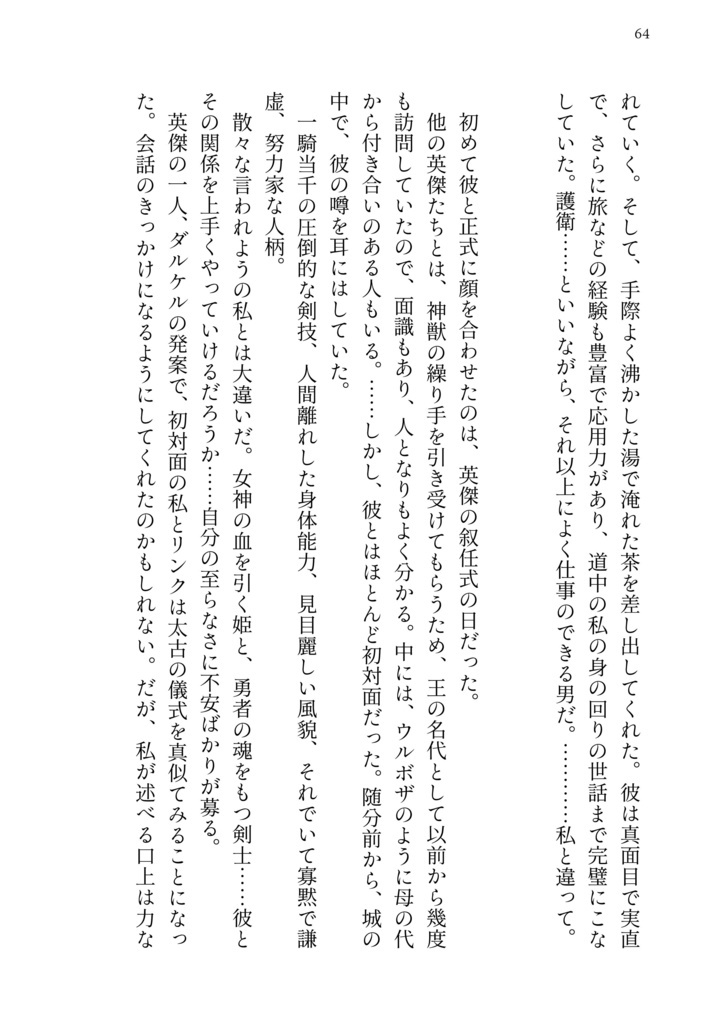 64
れていく。そして、手際よく沸かした湯で淹れた茶を差し出してくれた。彼は真面目で実直
で、さらに旅などの経験も豊富で応用力があり、道中の私の身の回りの世話まで完璧にこな
していた。護衛……といいながら、それ以上によく仕事のできる男だ。…………私と違って。
初めて彼と正式に顔を合わせたのは、英傑の叙任式の日だった。
他の英傑たちとは、神獣の繰り手を引き受けてもらうため、王の名代として以前から幾度
も訪問していたので、面識もあり、人となりもよく分かる。中には、ウルボザのように母の代
から付き合いのある人もいる。……しかし、彼とはほとんど初対面だった。随分前から、城の
中で、彼の噂を耳にはしていた。
一騎当千の圧倒的な剣技、人間離れした身体能力、見目麗しい風貌、それでいて寡黙で謙
虚、努力家な人柄。
散々な言われようの私とは大違いだ。女神の血を引く姫と、勇者の魂をもつ剣士……彼と
その関係を上手くやっていけるだろうか……自分の至らなさに不安ばかりが募る。
英傑の一人、ダルケルの発案で、初対面の私とリンクは太古の儀式を真似てみることになっ
た。会話のきっかけになるようにしてくれたのかもしれない。だが、私が述べる口上は力な